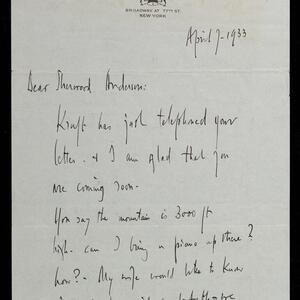 BROADWAY AT 77TH ST.
NEW YORK
April 7 - 1933
Dear Sherwood Anderson:
has just telephoned your
letter. & I am glad that you
are coming soon -
You say the mountain is 3000 ft
high - can I bring a piano up there?
how? - My wife would like to know